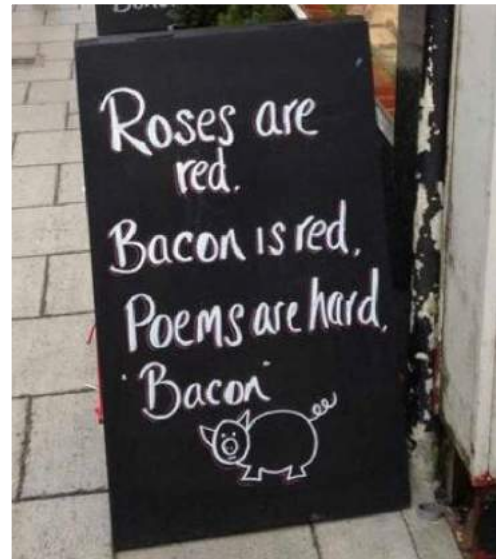 Roses are
red.
Bacon is red,
Poems are hard,
"Bacon"